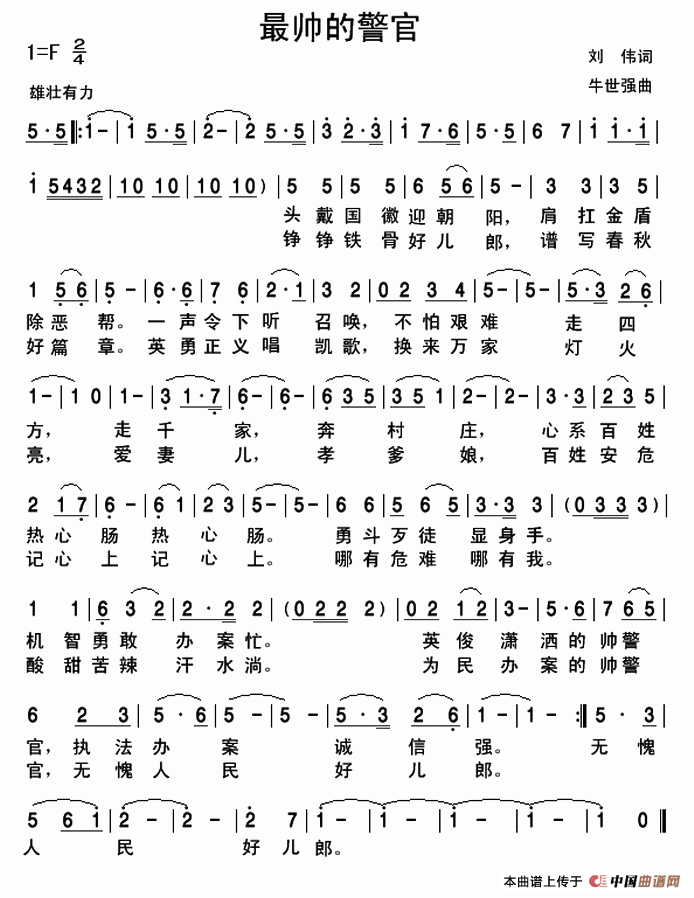 最帅的警官
1=F 2/4
刘 伟词
雄壮有力
牛世强曲
5·5‖:1-|1 5·5|2-|2 5·5|3 2·3|1 7·6|5·5|6 7|1 1·1|
1 5432|10 10|10 10)|5 5|5 5|6 56|5-|3 3|3 5|
头戴国徽迎朝阳,肩扛金盾
铮铮铁骨好儿郎,谱写春秋
1 56|5-|6·6|7 6|2·1|3 2|02 34|5-|5-|5·3 26|
除恶帮。一声令下听召唤,不怕艰难走四
好篇章。英勇正义唱凯歌,换来万家灯火
1-|10|1-|3 1·7|6-|6-|6 35|35 1|2-|2-|3·3|2 35|
方,走千家,奔村庄,心系百姓
亮,爱妻儿,孝爹娘,百姓安危
2 17|6-|6 1|2 3|5-|5-|06 6|5 65|3·3 3|(03 33)|
热心肠热心肠。勇斗歹徒显身手。
记心上记心上。哪有危难哪有我。
1 1|6 3 2|2·2 2|(02 2 2)|02 12|3-|5·6|7 65|
机智勇敢办案忙。英俊潇洒的帅警
酸甜苦辣汗水淌。为民办案的帅警
6 23|5·6|5-|5-|5·3|2 6|1-|1-:‖5·3|
官,执法办案诚信强。无愧
官,无愧人民好儿郎。
5 61|2-|2-|2 7|1-|1-|1-|1 0‖
人民好儿郎。
本曲谱上传于 中国曲谱网